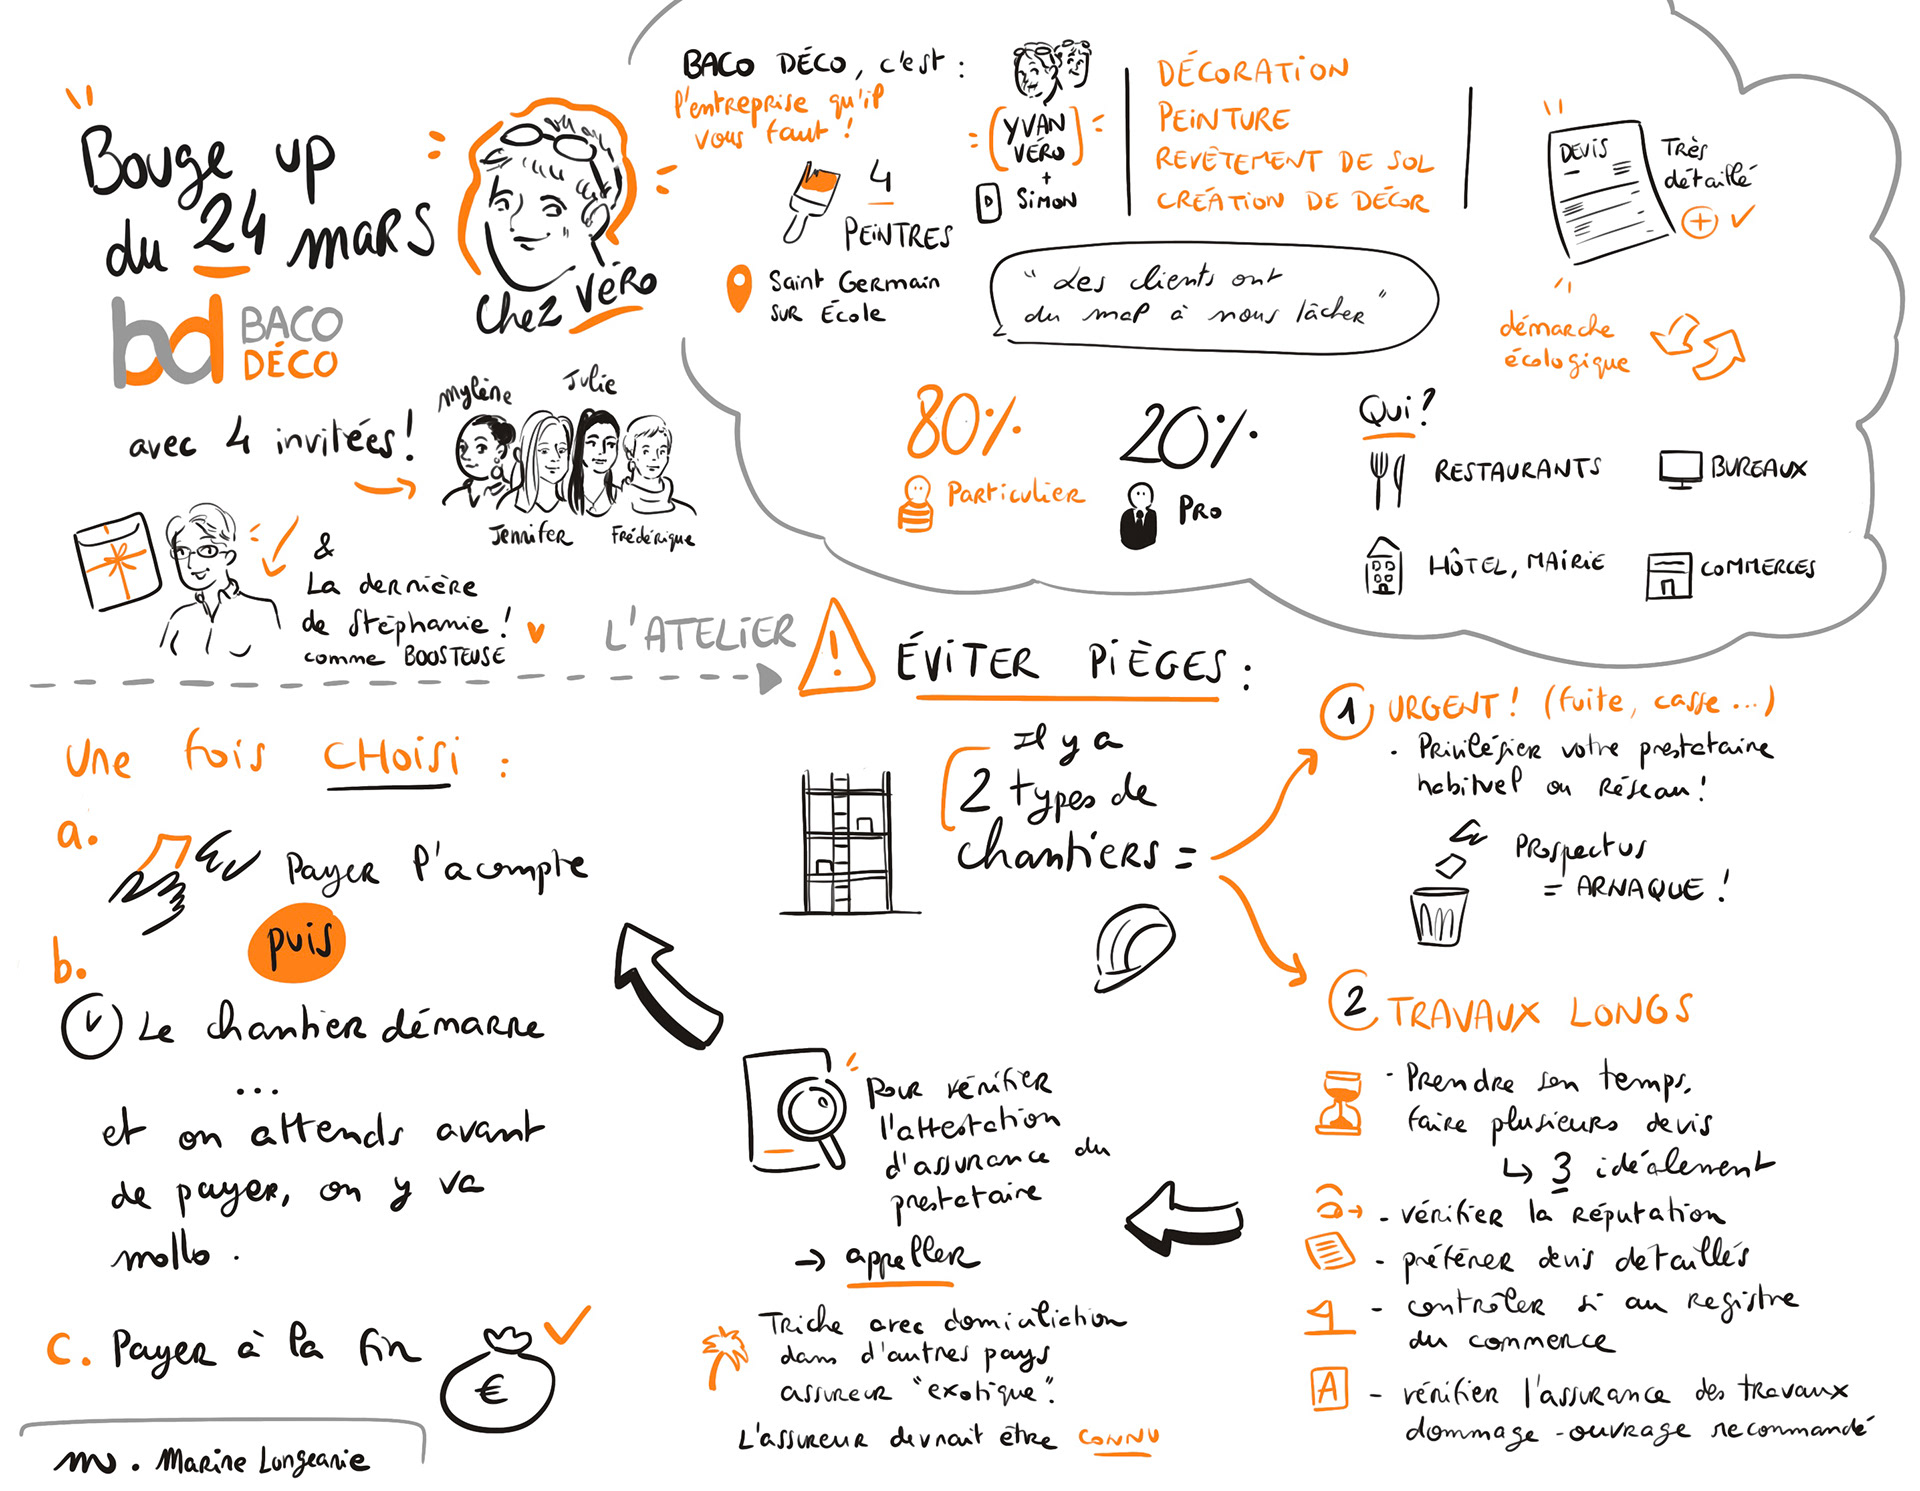 Bouge up
du 24 mars
Chez Véro
bd BACO
DÉCO
avec 4 invitées !
Mylène
Julie
Jennifer
Frédérique
&
La dernière
de Stéphanie !
comme BOOSTEUSE
BACO DÉCO, c'est :
l'entreprise qu'il
vous faut !
4
PEINTRES
Saint Germain
sur École
YVAN
VÉRO
+
SIMON
DÉCORATION
PEINTURE
REVÊTEMENT DE SOL
CRÉATION DE DÉCOR
"Les clients ont
du mal à nous lâcher"
DEVIS
Très
détaillé
+
démarche
écologique
80%
Particulier
20%
PRO
Qui ?
RESTAURANTS
BUREAUX
HÔTEL, MAIRIE
COMMERCES
L'ATELIER
! ÉVITER PIÈGES :
Il y a
2 types de
chantiers =
1 URGENT ! (fuite, casse ...)
- Privilégier votre prestataire
habituel ou réseau !
Prospectus
= ARNAQUE !
2 TRAVAUX LONGS
- Prendre son temps,
faire plusieurs devis
↳ 3 idéalement
- vérifier la réputation
- préférer devis detaillés
- contrôler si au registre
du commerce
A - vérifier l'assurance des travaux
dommage-ouvrage recommandé
Pour vérifier
l'attestation
d'assurance du
prestataire
→ appeller
Triche avec domiciliation
dans d'autres pays
assureur "exotique".
L'assureur devrait être CONNU
Une fois CHOISI :
a. Payer l'acompte
puis
b.
Le chantier démarre
...
et on attends avant
de payer, on y va
mollo.
c. Payer à la fin
€
m. Marine Longeanie